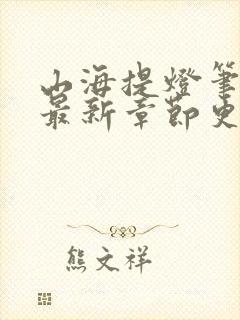 山海提燈筆
最新章節史
熊文祥